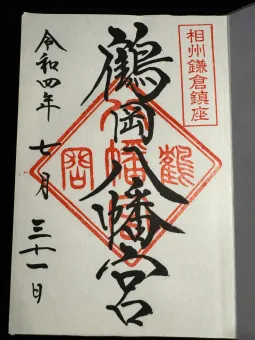 相州鎌倉鎮座
鶴岡八幡宮
令和四年七月三十一日